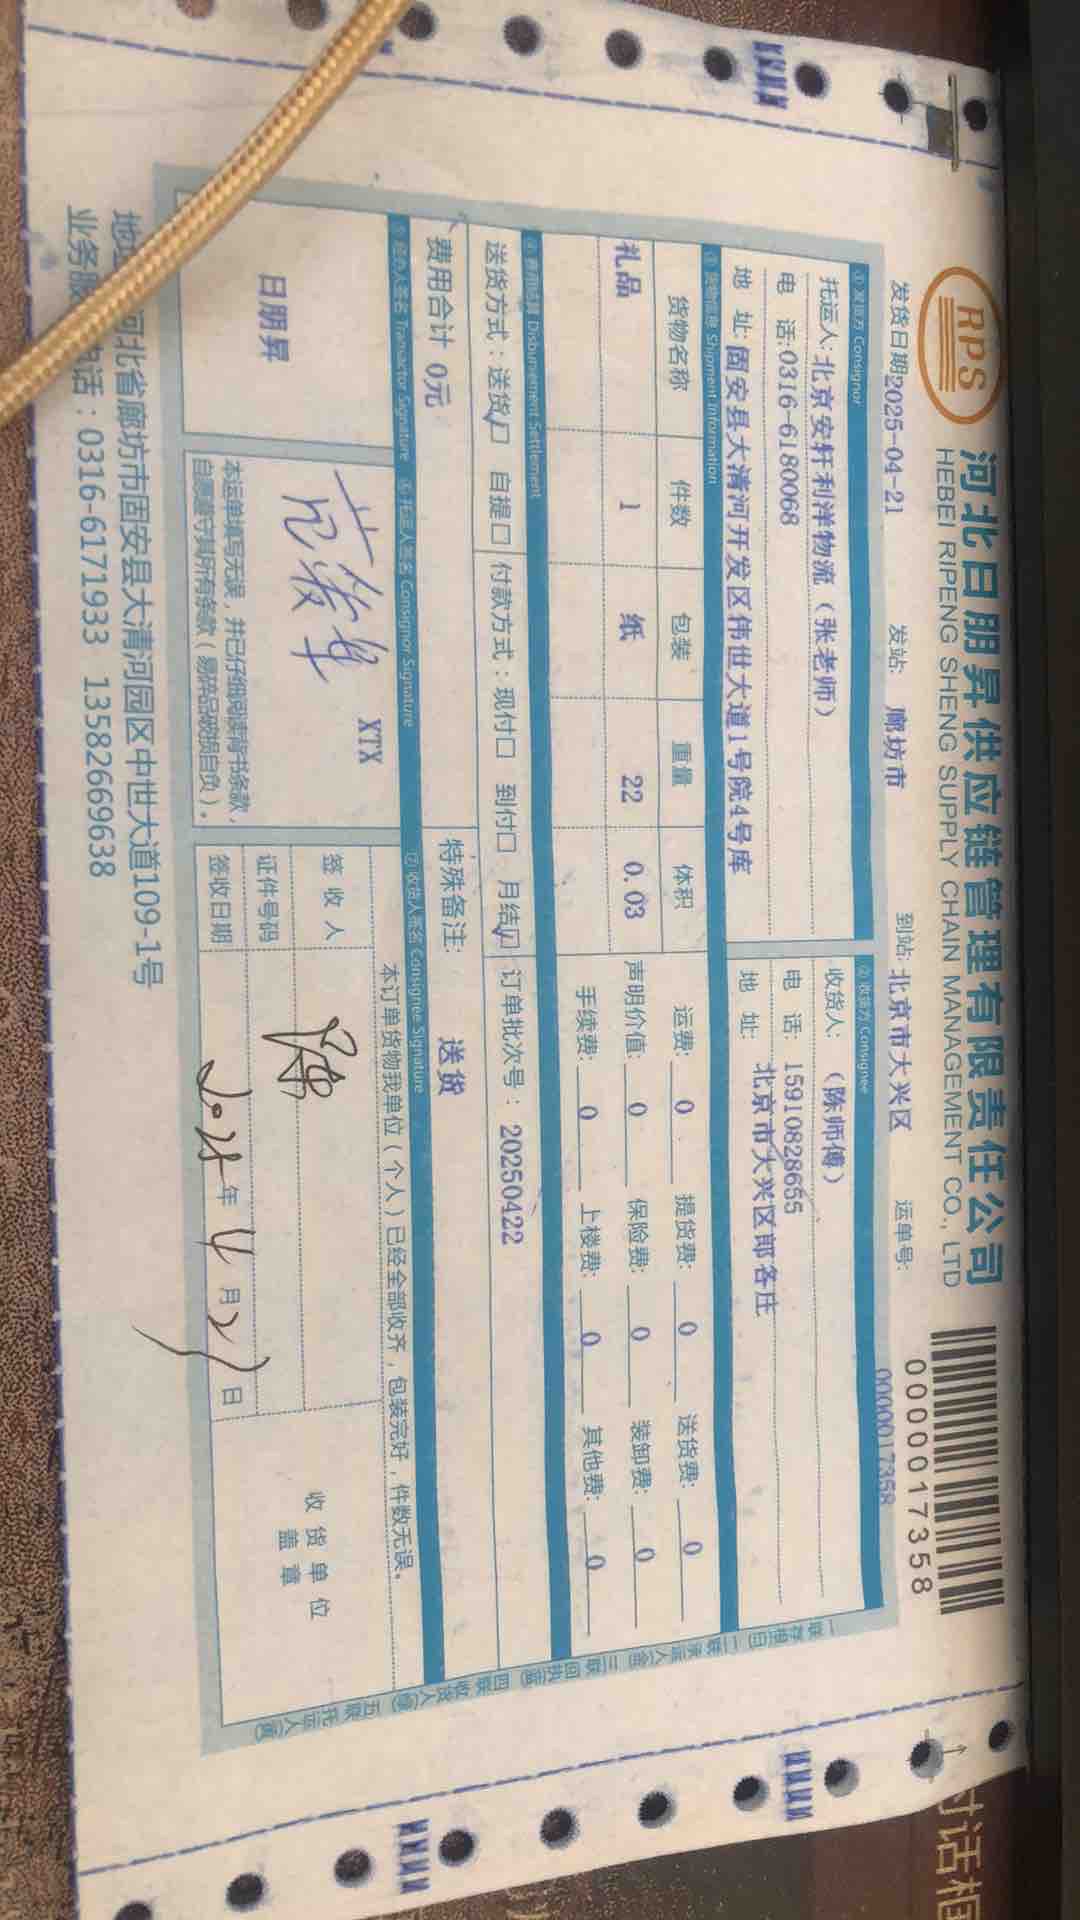 RPS
河北日朋昇供应链管理有限责任公司
HEBEI RIPENG SHENG SUPPLY CHAIN MANAGEMENT CO., LTD
0000017358
发货日期2025-04-21 发站: 廊坊市 到站: 北京市大兴区 运单号: 0000017358
① 发货方 Consignor
② 收货方 Consignee
托运人: 北京安轩利洋物流（张老师）
收货人: （陈师傅）
电 话:0316-6180068
电 话: 15910828655
地 址: 固安县大清河开发区伟世大道1号院4号库
地 址: 北京市大兴区郎各庄
③ 货物信息 Shipment Information
货物名称 件数 包装 重量 体积
运费: 0 提货费: 0 送货费: 0
礼品 1 纸 22 0.03
声明价值: 0 保险费: 0 装卸费: 0
手续费: 0 上楼费: 0 其他费: 0
④ 费用结算 Disbursement Settlement
送货方式：送货☑ 自提□ 付款方式：现付□ 到付□ 月结☑ 订单批次号： 20250422
费用合计 0元
特殊备注: 送货
⑤ 经办人签名 Transactor Signature ⑥ 托运人签名 Consignor Signature ⑦ 收货人签名 Consignee Signature
日朋昇
XTX
本订单货物我单位（个人）已经全部收齐，包装完好，件数无误。
签 收 人
证件号码
签收日期
年 4 月 日
收货单位
盖章
本运单填写无误，并已仔细阅读背书条款，
自愿遵守其所有条款（易碎品破损自负）。
河北省廊坊市固安县大清河园区中世大道109-1号
业务 话：0316-6171933 13582669638
一联存根(白) 二联承运人(金) 三联回执(蓝) 四联收货人(绿) 五联托运人(黄)